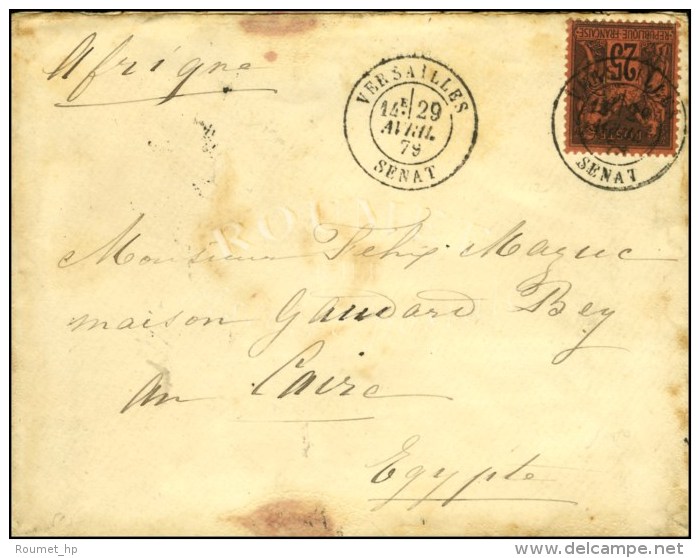 Afrique
VERSAILLES
14E 29
AVRIL
79
SENAT
REPUBLIQUE FRANÇAISE
25
VERSAILLES
29
79
SENAT
ROUMET
Monsieur Felix Mazuc
maison Gaudard Bey
au Caire
Egypte
Roumet_hp
delcampe.net